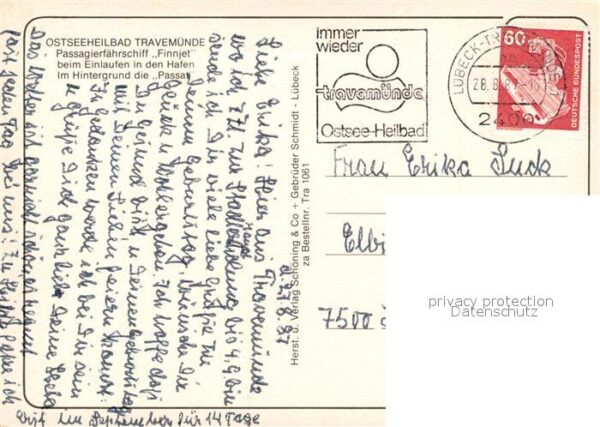 OSTSEEHEILBAD TRAVEMÜNDE
Passagierfährschiff „Finnjet"
beim Einlaufen in den Hafen
Im Hintergrund die „Passat"
Immer
wieder
travemünde
Ostsee-Heilbad
LÜBECK-TR
28.8.87-1
2400
60
DEUTSCHE BUNDESPOST
Frau Erika Suck
Elbi
7500
privacy protection
Datenschutz
Herst. u. Verlag Schöning & Co + Gebrüder Schmidt - Lübeck
za Bestellnr. Tra 1061
d. 27.8.87
Liebe Erika! Hier aus Travemünde
wo ich z.Zt. zur bis 4.9. bin
sende ich Dir viele liebe Grüße. Zu
Deinem Geburtstag wünsche Dir
Glück u. Wohlergehen. Ich hoffe daß
Du Gesund bist u. Deinen Geburtstag
mit Deinen Lieben feiern kannst.
In Gedanken werde ich bei Dir sein
es grüßt Dich ganz lieb Deine
Das Wetter ist garnicht schön, es regnet
fast jeden Tag bei uns! Zu ich
erst im September für 14 Tage